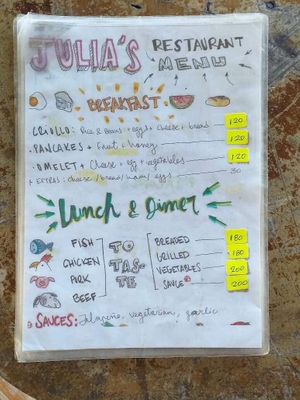 JULIA'S RESTAURANT MENU
BREAKFAST
· CRIOLLO: Rice & Beans + eggs + cheese + bread 120
· PANCAKES + Fruit + honey 120
· OMELET + Cheese + egg + vegetables 120
+ EXTRAS: cheese / bread / ham / eggs 30
Lunch & dinner
FISH
CHICKEN
PORK
BEEF
TO TAS- TE
BREADED 180
GRILLED 180
VEGETABLES 200
SAUCE 200
SAUCES: Jalapeño, vegetarian, garlic